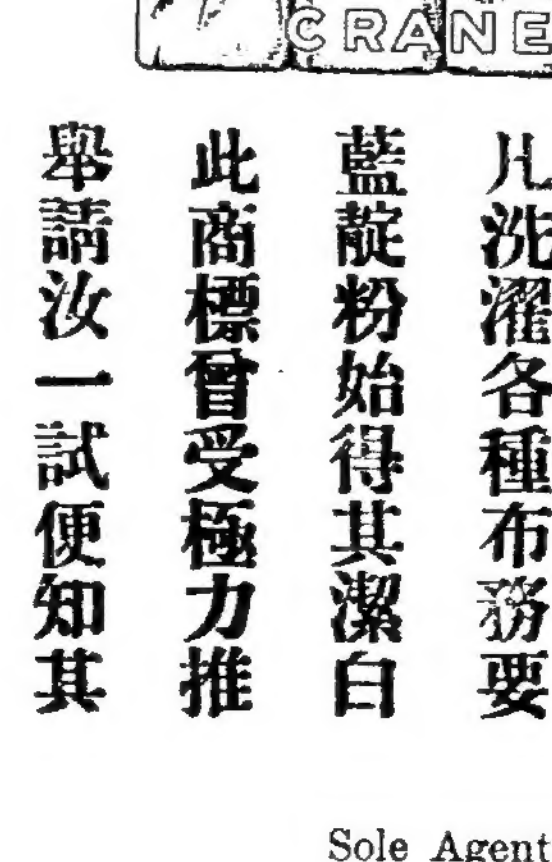 CRANE
凡洗濯各種布務要
藍靛粉始得其潔白
此商標曾受極力推
舉請汝一試便知其
Sole Agent